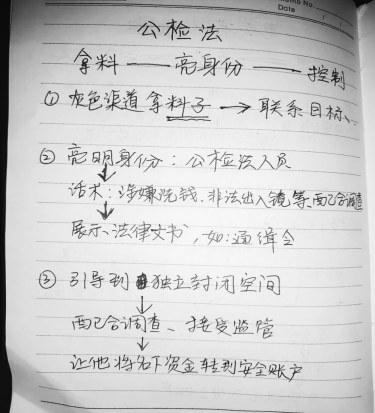 Memo No.
Date / /
公检法
拿料 — 亮身份 — 控制
① 灰色渠道拿料子 → 联系目标、
② 亮明身份：公检法人员
↓
话术：涉嫌洗钱、非法出入镜等、配合调查
↓
展示、法律文书，如：通缉令
③ 引导到独立封闭空间
↓
配合调查、接受监管
↓
让他将名下资金转到安全账户